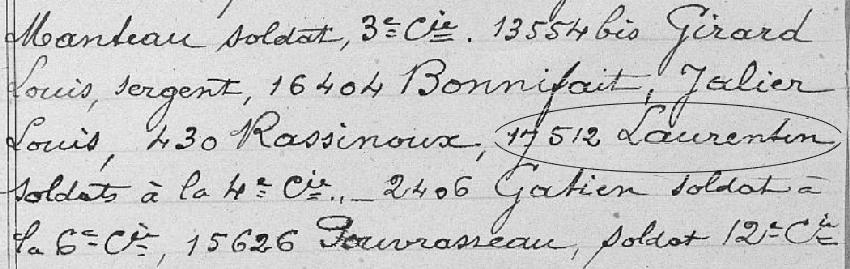 Manteau soldat, 3e Cie. 13554 bis Girard
Louis, sergent, 16404 Bonnifait, Jalier
Louis, 430 Rassinoux, 17512 Laurentin,
soldats à la 4e Cie._ 2406 Gatien soldat à
la 6e Cie, 15626 Pouvrasseau, soldat 12e Cie